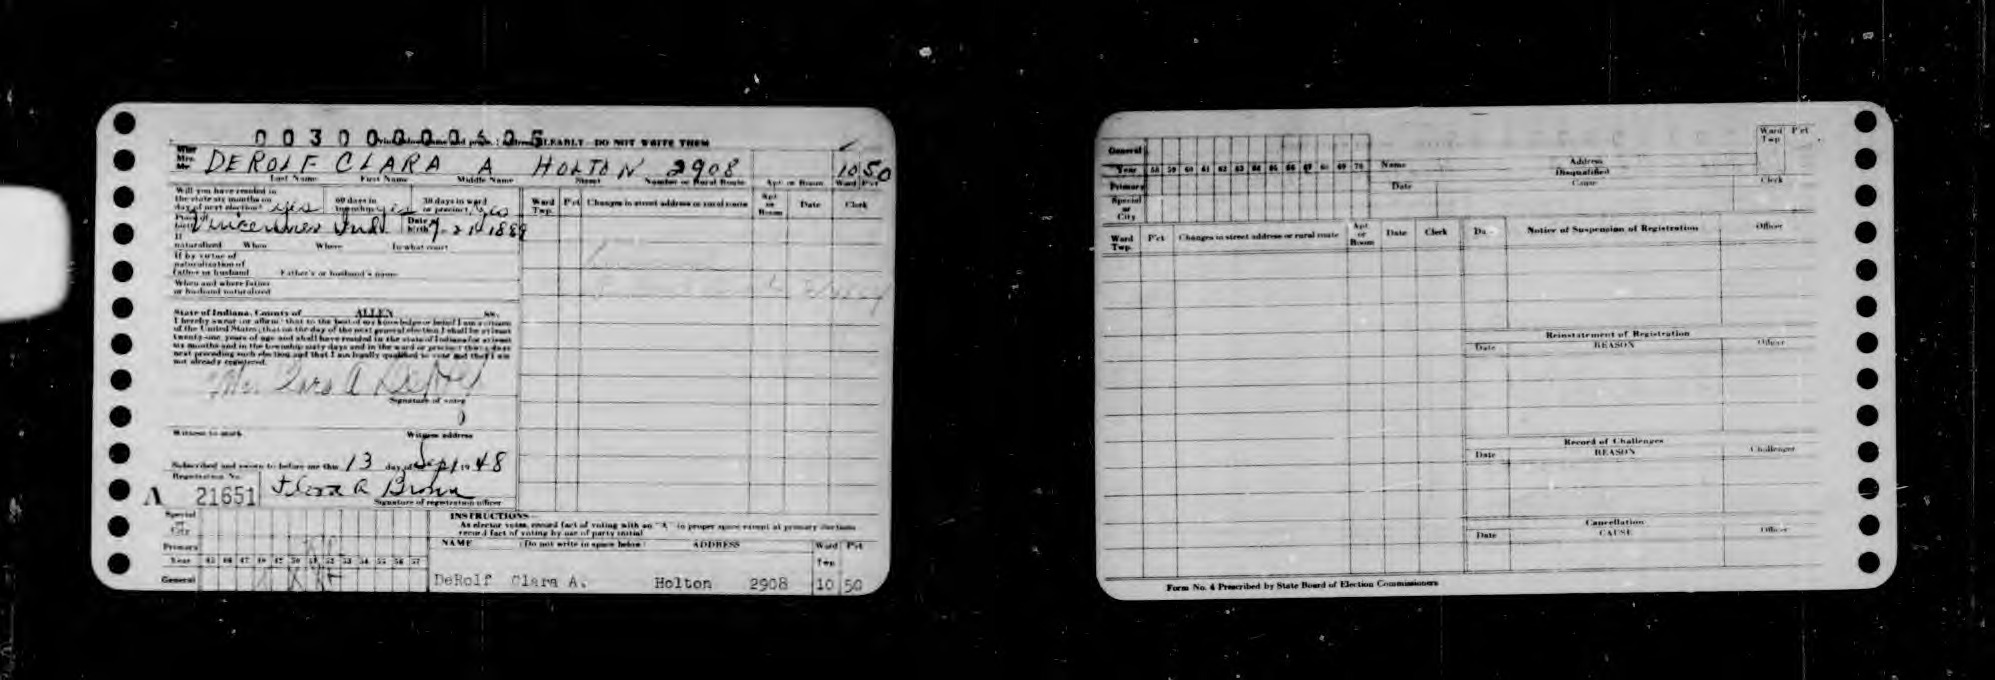 0 0 3 0 0 0 0 0 6 0 5 CLEARLY - DO NOT WRITE THEM
Miss
Mrs.
Mr.
DEROLF CLARA A HOLTON 2908 10 50
Last Name First Name Middle Name Street Number or Rural Route Apt. or Room Ward Pct
Will you have resided in
the state six months on
day of next election? yes
60 days in
township? yes
30 days in ward
or precinct? yes
Ward
Twp.
Pct
Changes in street address or rural route
Apt.
or
Room
Date
Clerk
Place of
birth Vincennes Ind.
Date of
birth 9-21-1889
If
naturalized When Where In what court
If by virtue of
naturalization of
father or husband Father's or husband's name
When and where father
or husband naturalized
State of Indiana, County of ALLEN ss.
I hereby swear (or affirm) that to the best of my knowledge or belief I am a citizen
of the United States; that on the day of the next general election I shall be at least
twenty-one years of age and shall have resided in the state of Indiana for at least
six months and in the township sixty days and in the ward or precinct thirty days
next preceding such election and that I am legally qualified to vote and that I am
not already registered.
Mrs. Clara A DeRolf
Signature of voter
Witness to mark Witness address
Subscribed and sworn to before me this 13 day of Sept 19 48
Registration No.
A 21651
Flora A Brown
Signature of registration officer
Special
or
City
Primary
Year 45 46 47 48 49 50 51 52 53 54 55 56 57
General
INSTRUCTIONS
As elector votes, record fact of voting with an "A" in proper space except at primary elections
record fact of voting by use of party initial
NAME (Do not write in space below) ADDRESS Ward Pct
Twp
DeRolf Clara A. Holton 2908 10 50
General
Year 58 59 60 61 62 63 64 65 66 67 68 69 70
Primary
Special
or
City
Name Address
Ward
Twp
Pct
Disqualified
Date Cause Clerk
Ward
Twp.
Pct
Changes in street address or rural route
Apt.
or
Room
Date
Clerk
Notice of Suspension of Registration
Officer
Reinstatement of Registration
Date REASON Officer
Record of Challenges
Date REASON Challenger
Cancellation
Date CAUSE Officer
Form No. 4 Prescribed by State Board of Election Commissioners